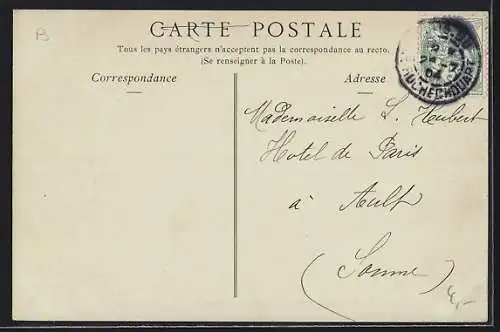 B
CARTE POSTALE
Tous les pays étrangers n'acceptent pas la correspondance au recto.
(Se renseigner à la Poste).
Correspondance
Adresse
ROCHECHOUART
Mademoiselle L. Heubert
Hotel de Paris
à Ault
(Somme)